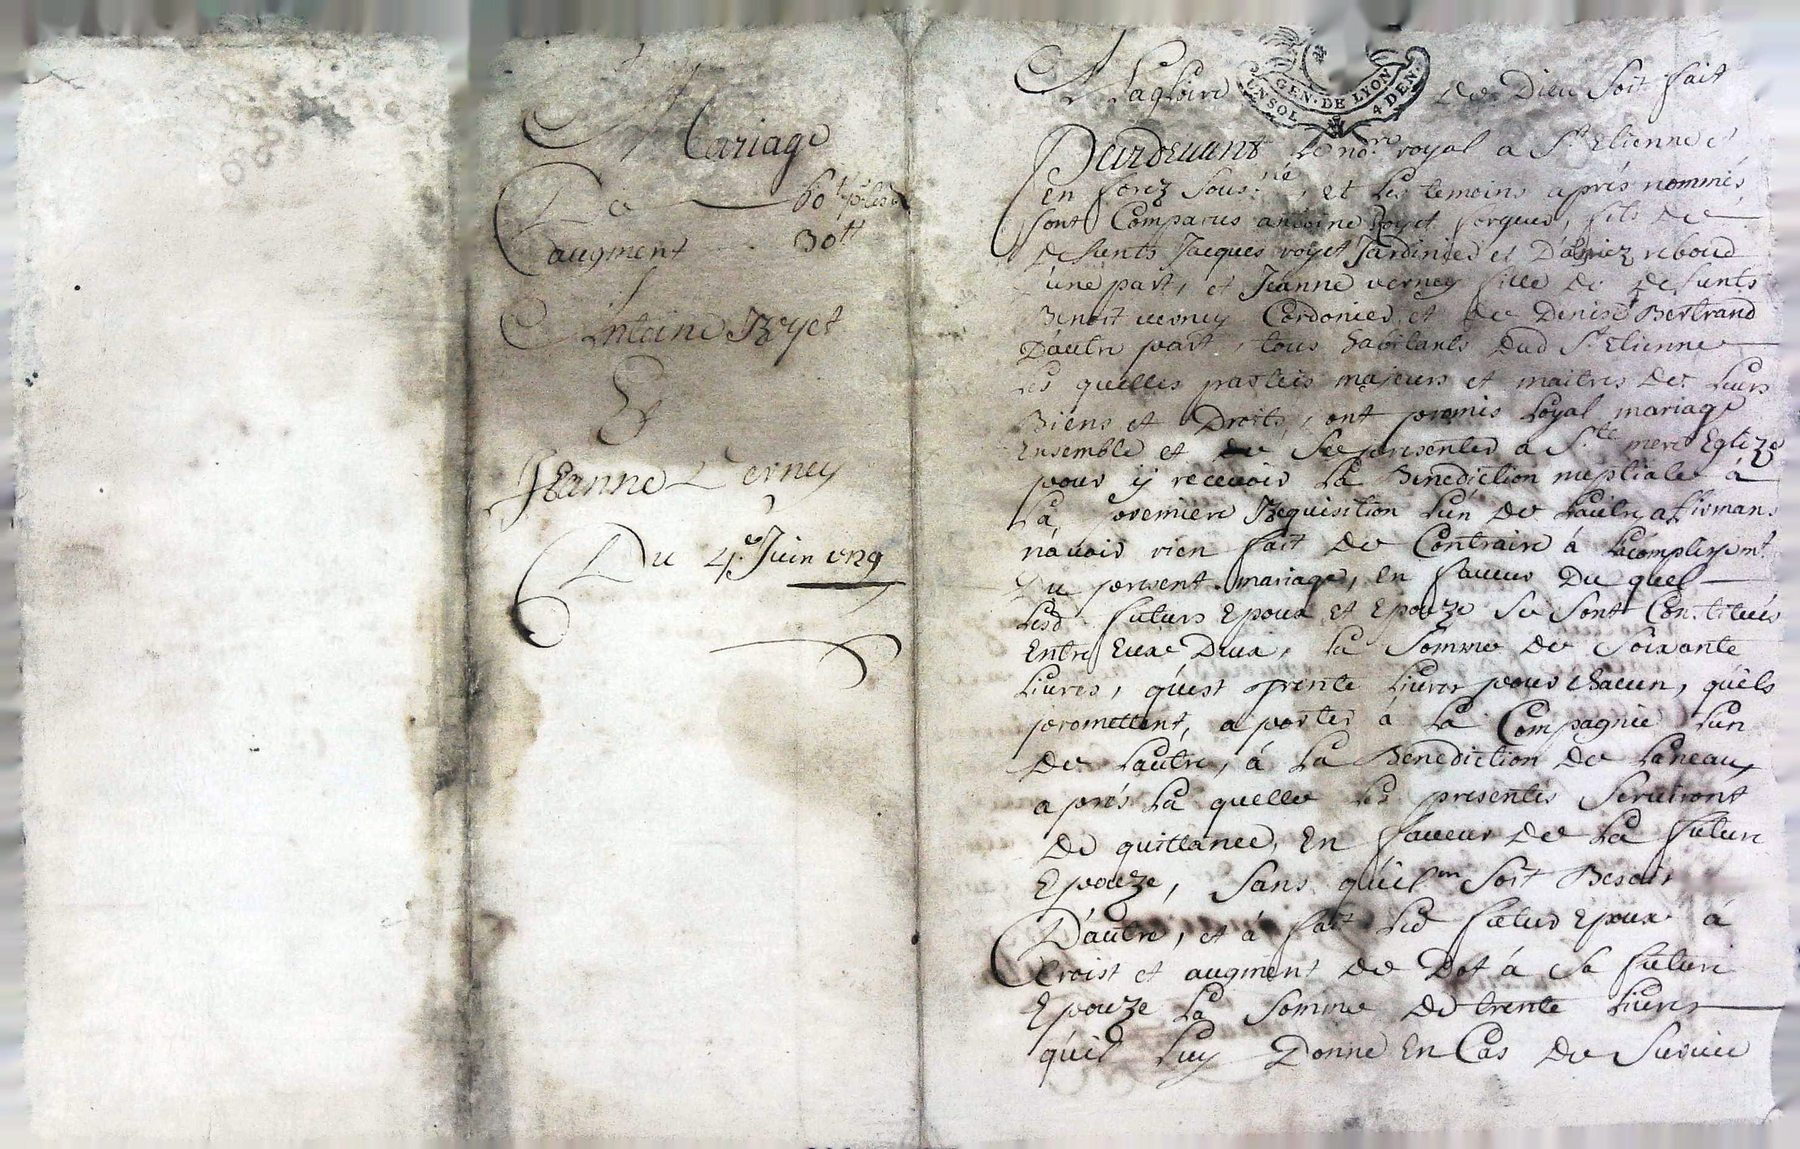 Mariage
De 60# plus
augment 30#
Antoine Royet
&
Jeanne Verney
Du 4.e Juin 1729
GEN. DE LYON
UN SOL 4 DEN.
A La gloire de Dieu soit fait
Pardevant le no.re royal a St Etienne
en forez sous.né, et les temoins aprés nommés
sont Comparus antoine Royet forgeur, fils de
defunts Jacques royet Jardinier et D'agniez reboud
une part, et Jeanne verney fille de defunts
Benoit verney Cordonier, et de Denise Bertrand
D'autre part, tous habitants dud St Etienne
Les quelles parteis majeurs et maitres de Leurs
Biens et Droits, ont promis Loyal mariage
Ensemble et de Se presenter a S.te mere Eglize
pour ÿ recevoir La Benediction nuptiale à
La premiere Requisition L'un de Lautre affirmans
n'avoir rien fait de Contraire à Lacomplisem.t
Du present mariage, En faveur Du quel
Lesd. futurs Epoux et Epouze Se Sont Constitués
Entre Eux Deux, la Somme de Soixante
Livres, qu'est trente Livres pour chacun, quils
promettent, aporter à La Compagnie Lun
de Lautre, à La Benediction de Laneau,
aprés La quelle les presentes Serviront
De quittance, En faveur de La future
Epouze, Sans qu'il en Soit Besoin
D'autre, et à fait Led futur Epoux à
Croist et augment de Dot à Sa future
Epouze La Somme de trente Livres
qu'il Luy Donne En Cas de Survie